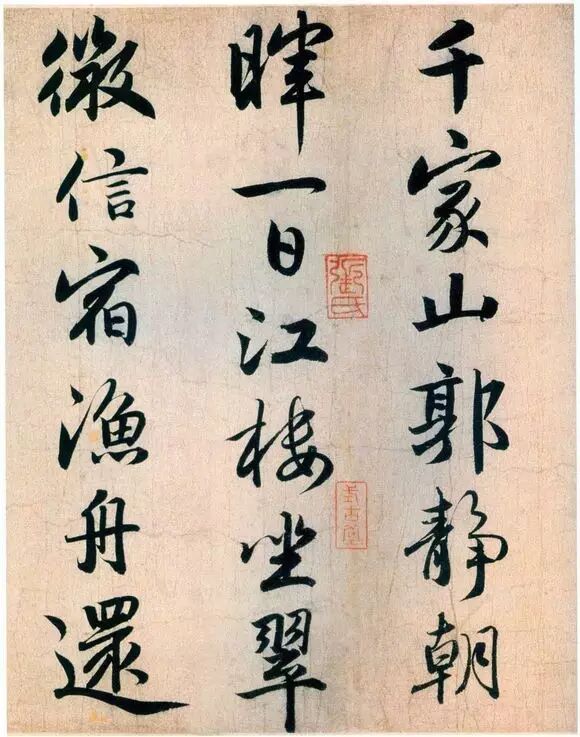 千家山郭靜朝
暉一日江楼坐翠
微信宿漁舟還
張氏